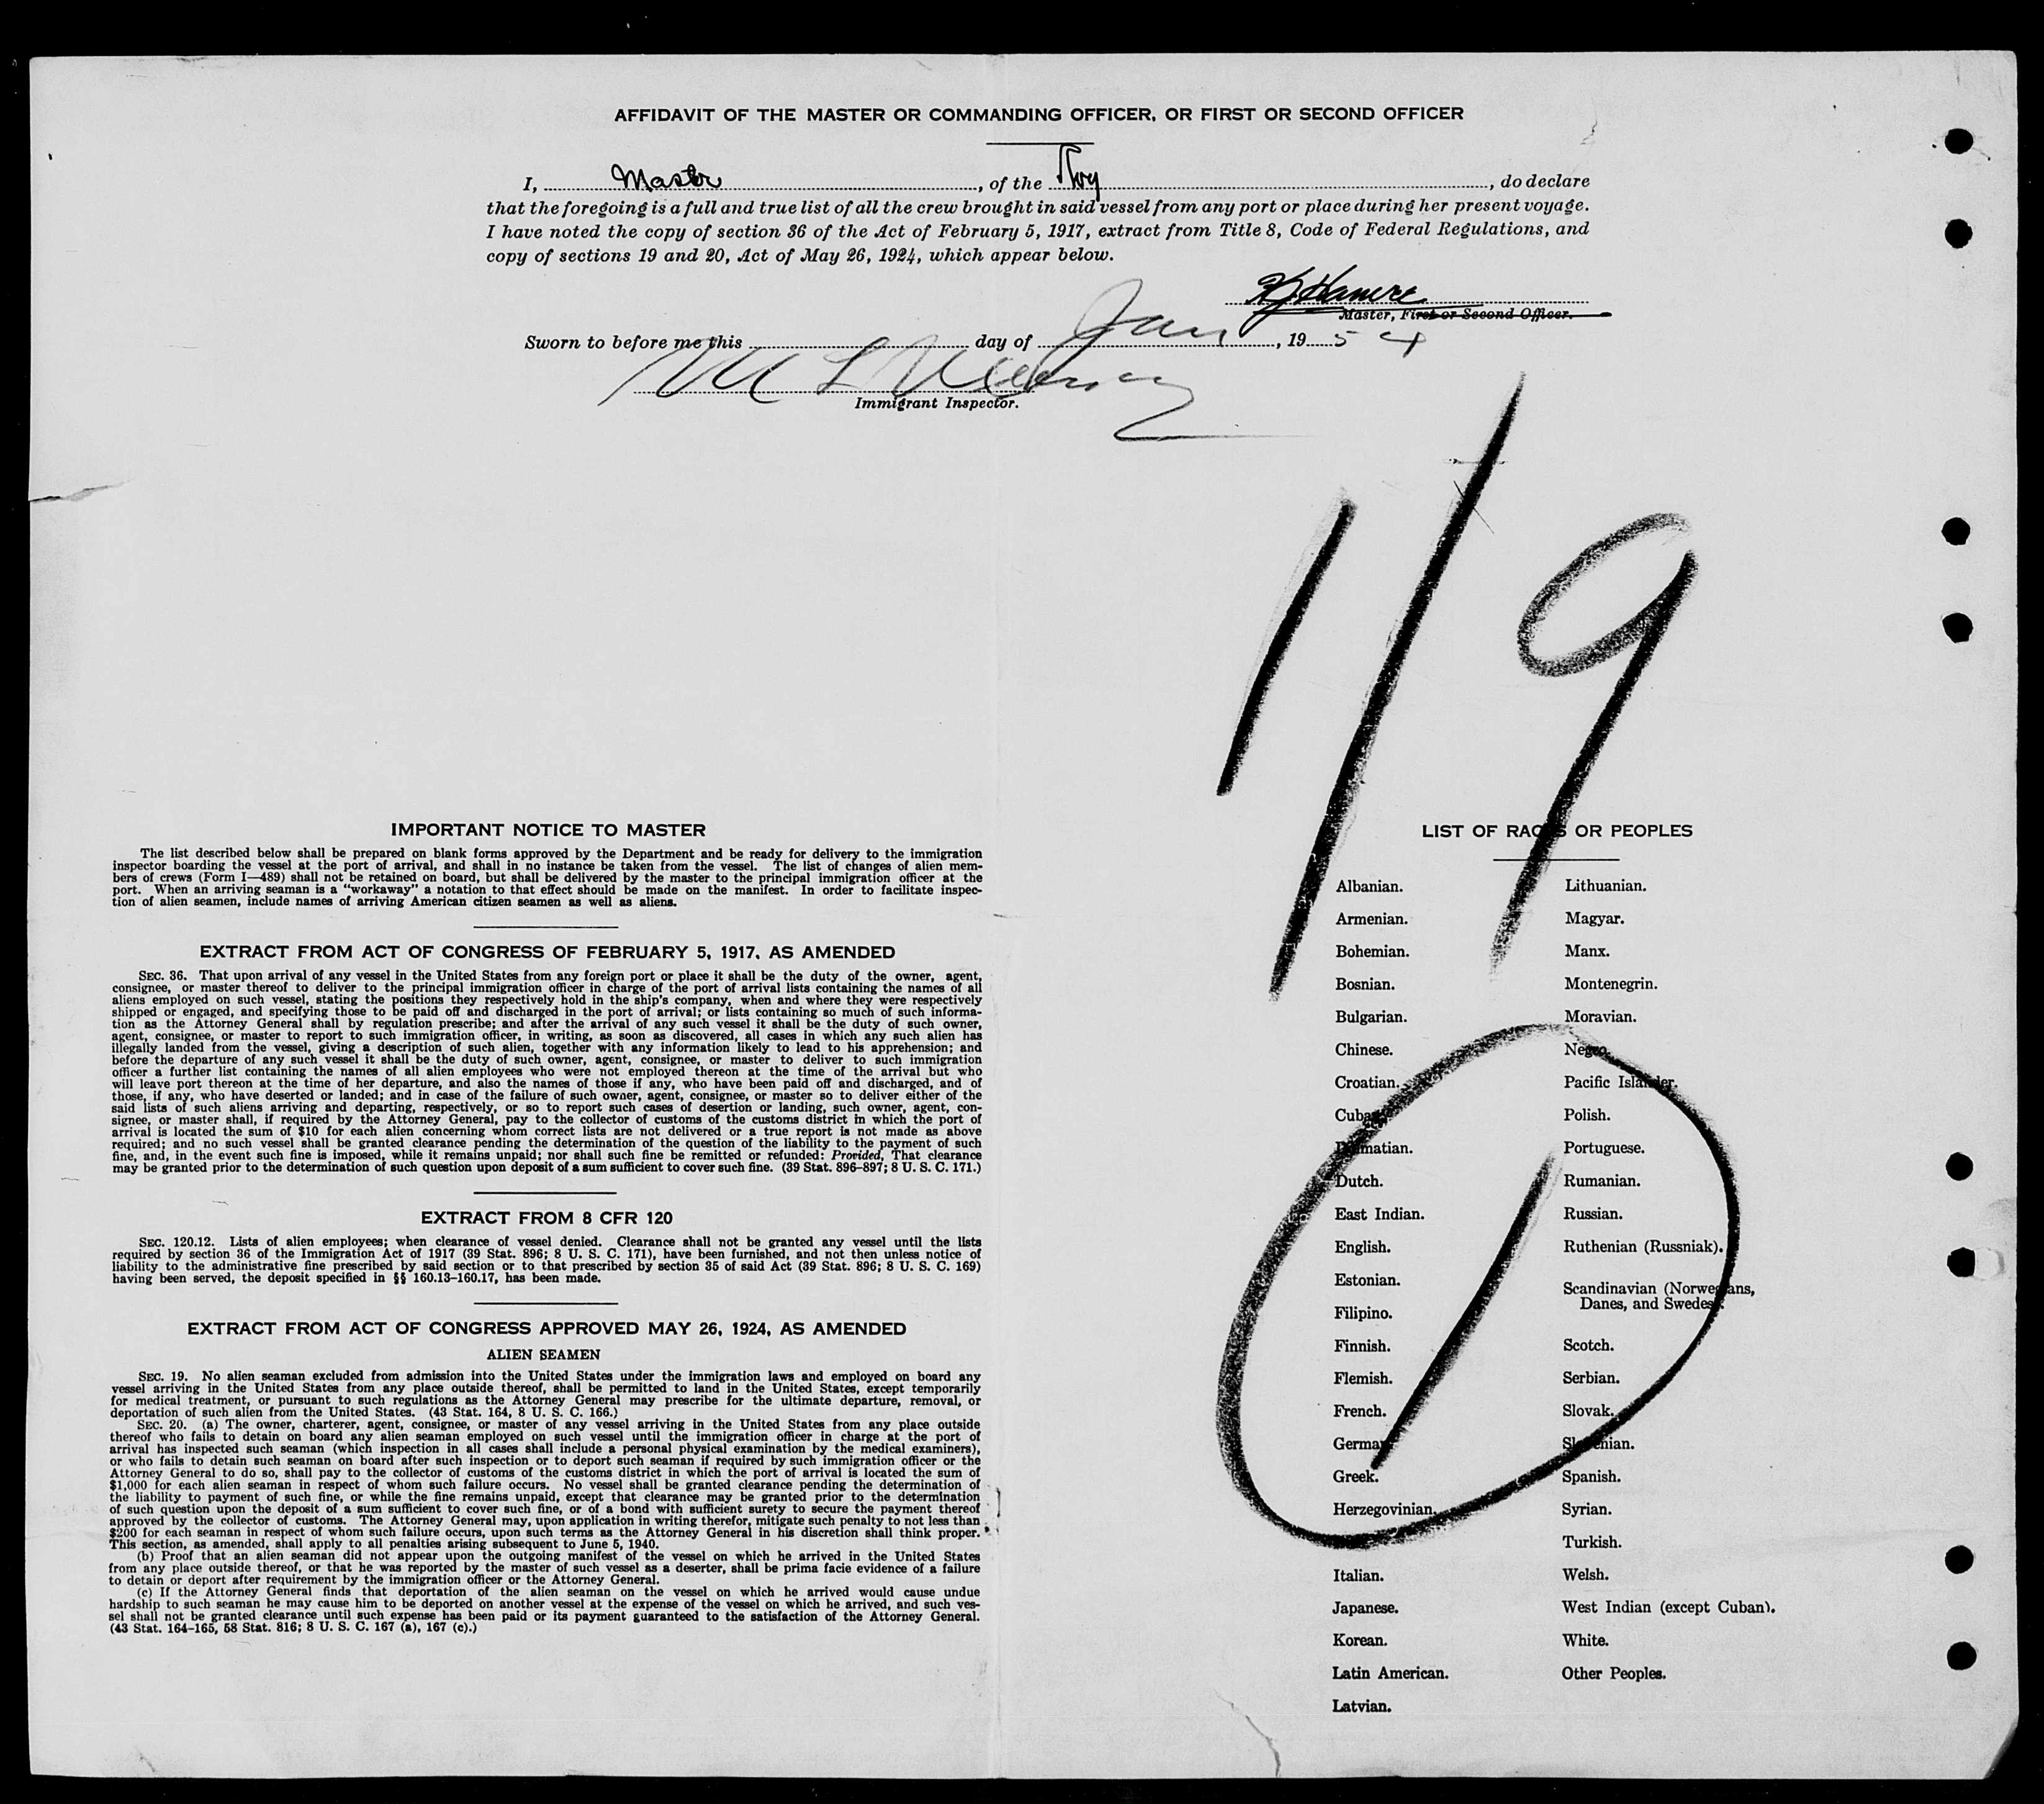 AFFIDAVIT OF THE MASTER OR COMMANDING OFFICER, OR FIRST OR SECOND OFFICER
I, Master, of the, do declare
that the foregoing is a full and true list of all the crew brought in said vessel from any port or place during her present voyage.
I have noted the copy of section 36 of the Act of February 5, 1917, extract from Title 8, Code of Federal Regulations, and
copy of sections 19 and 20, Act of May 26, 1924, which appear below.
Master, First or Second Officer.
Sworn to before me this day of Jan, 1954
Immigrant Inspector.
1/9
IMPORTANT NOTICE TO MASTER
The list described below shall be prepared on blank forms approved by the Department and be ready for delivery to the immigration
inspector boarding the vessel at the port of arrival, and shall in no instance be taken from the vessel. The list of changes of alien mem-
bers of crews (Form I—489) shall not be retained on board, but shall be delivered by the master to the principal immigration officer at the
port. When an arriving seaman is a "workaway" a notation to that effect should be made on the manifest. In order to facilitate inspec-
tion of alien seamen, include names of arriving American citizen seamen as well as aliens.
EXTRACT FROM ACT OF CONGRESS OF FEBRUARY 5, 1917, AS AMENDED
SEC. 36. That upon arrival of any vessel in the United States from any foreign port or place it shall be the duty of the owner, agent,
consignee, or master thereof to deliver to the principal immigration officer in charge of the port of arrival lists containing the names of all
aliens employed on such vessel, stating the positions they respectively hold in the ship's company, when and where they were respectively
shipped or engaged, and specifying those to be paid off and discharged in the port of arrival; or lists containing so much of such informa-
tion as the Attorney General shall by regulation prescribe; and after the arrival of any such vessel it shall be the duty of such owner,
agent, consignee, or master to report to such immigration officer, in writing, as soon as discovered, all cases in which any such alien has
illegally landed from the vessel, giving a description of such alien, together with any information likely to lead to his apprehension; and
before the departure of any such vessel it shall be the duty of such owner, agent, consignee, or master to deliver to such immigration
officer a further list containing the names of all alien employees who were not employed thereon at the time of the arrival but who
will leave port thereon at the time of her departure, and also the names of those if any, who have been paid off and discharged, and of
those, if any, who have deserted or landed; and in case of the failure of such owner, agent, consignee, or master so to deliver either of the
said lists of such aliens arriving and departing, respectively, or so to report such cases of desertion or landing, such owner, agent, con-
signee, or master shall, if required by the Attorney General, pay to the collector of customs of the customs district in which the port of
arrival is located the sum of $10 for each alien concerning whom correct lists are not delivered or a true report is not made as above
required; and no such vessel shall be granted clearance pending the determination of the question of the liability to the payment of such
fine, and, in the event such fine is imposed, while it remains unpaid; nor shall such fine be remitted or refunded: Provided, That clearance
may be granted prior to the determination of such question upon deposit of a sum sufficient to cover such fine. (39 Stat. 896–897; 8 U. S. C. 171.)
EXTRACT FROM 8 CFR 120
SEC. 120.12. Lists of alien employees; when clearance of vessel denied. Clearance shall not be granted any vessel until the lists
required by section 36 of the Immigration Act of 1917 (39 Stat. 896; 8 U. S. C. 171), have been furnished, and not then unless notice of
liability to the administrative fine prescribed by said section or to that prescribed by section 35 of said Act (39 Stat. 896; 8 U. S. C. 169)
having been served, the deposit specified in §§ 160.13–160.17, has been made.
EXTRACT FROM ACT OF CONGRESS APPROVED MAY 26, 1924, AS AMENDED
ALIEN SEAMEN
SEC. 19. No alien seaman excluded from admission into the United States under the immigration laws and employed on board any
vessel arriving in the United States from any place outside thereof, shall be permitted to land in the United States, except temporarily
for medical treatment, or pursuant to such regulations as the Attorney General may prescribe for the ultimate departure, removal, or
deportation of such alien from the United States. (43 Stat. 164, 8 U. S. C. 166.)
SEC. 20. (a) The owner, charterer, agent, consignee, or master of any vessel arriving in the United States from any place outside
thereof who fails to detain on board any alien seaman employed on such vessel until the immigration officer in charge at the port of
arrival has inspected such seaman (which inspection in all cases shall include a personal physical examination by the medical examiners),
or who fails to detain such seaman on board after such inspection or to deport such seaman if required by such immigration officer or the
Attorney General to do so, shall pay to the collector of customs of the customs district in which the port of arrival is located the sum of
$1,000 for each alien seaman in respect of whom such failure occurs. No vessel shall be granted clearance pending the determination of
the liability to payment of such fine, or while the fine remains unpaid, except that clearance may be granted prior to the determination
of such question upon the deposit of a sum sufficient to cover such fine, or of a bond with sufficient surety to secure the payment thereof
approved by the collector of customs. The Attorney General may, upon application in writing therefor, mitigate such penalty to not less than
$200 for each seaman in respect of whom such failure occurs, upon such terms as the Attorney General in his discretion shall think proper.
This section, as amended, shall apply to all penalties arising subsequent to June 5, 1940.
(b) Proof that an alien seaman did not appear upon the outgoing manifest of the vessel on which he arrived in the United States
from any place outside thereof, or that he was reported by the master of such vessel as a deserter, shall be prima facie evidence of a failure
to detain or deport after requirement by the immigration officer or the Attorney General.
(c) If the Attorney General finds that deportation of the alien seaman on the vessel on which he arrived would cause undue
hardship to such seaman he may cause him to be deported on another vessel at the expense of the vessel on which he arrived, and such ves-
sel shall not be granted clearance until such expense has been paid or its payment guaranteed to the satisfaction of the Attorney General.
(43 Stat. 164–165, 58 Stat. 816; 8 U. S. C. 167 (a), 167 (c).)
LIST OF RACES OR PEOPLES
Albanian.
Armenian.
Bohemian.
Bosnian.
Bulgarian.
Chinese.
Croatian.
Cuban.
Dalmatian.
Dutch.
East Indian.
English.
Estonian.
Filipino.
Finnish.
Flemish.
French.
German.
Greek.
Herzegovinian.
Italian.
Japanese.
Korean.
Latin American.
Latvian.
Lithuanian.
Magyar.
Manx.
Montenegrin.
Moravian.
Negro.
Pacific Islander.
Polish.
Portuguese.
Rumanian.
Russian.
Ruthenian (Russniak).
Scandinavian (Norwegians,
Danes, and Swedes).
Scotch.
Serbian.
Slovak.
Slovenian.
Spanish.
Syrian.
Turkish.
Welsh.
West Indian (except Cuban).
White.
Other Peoples.
1